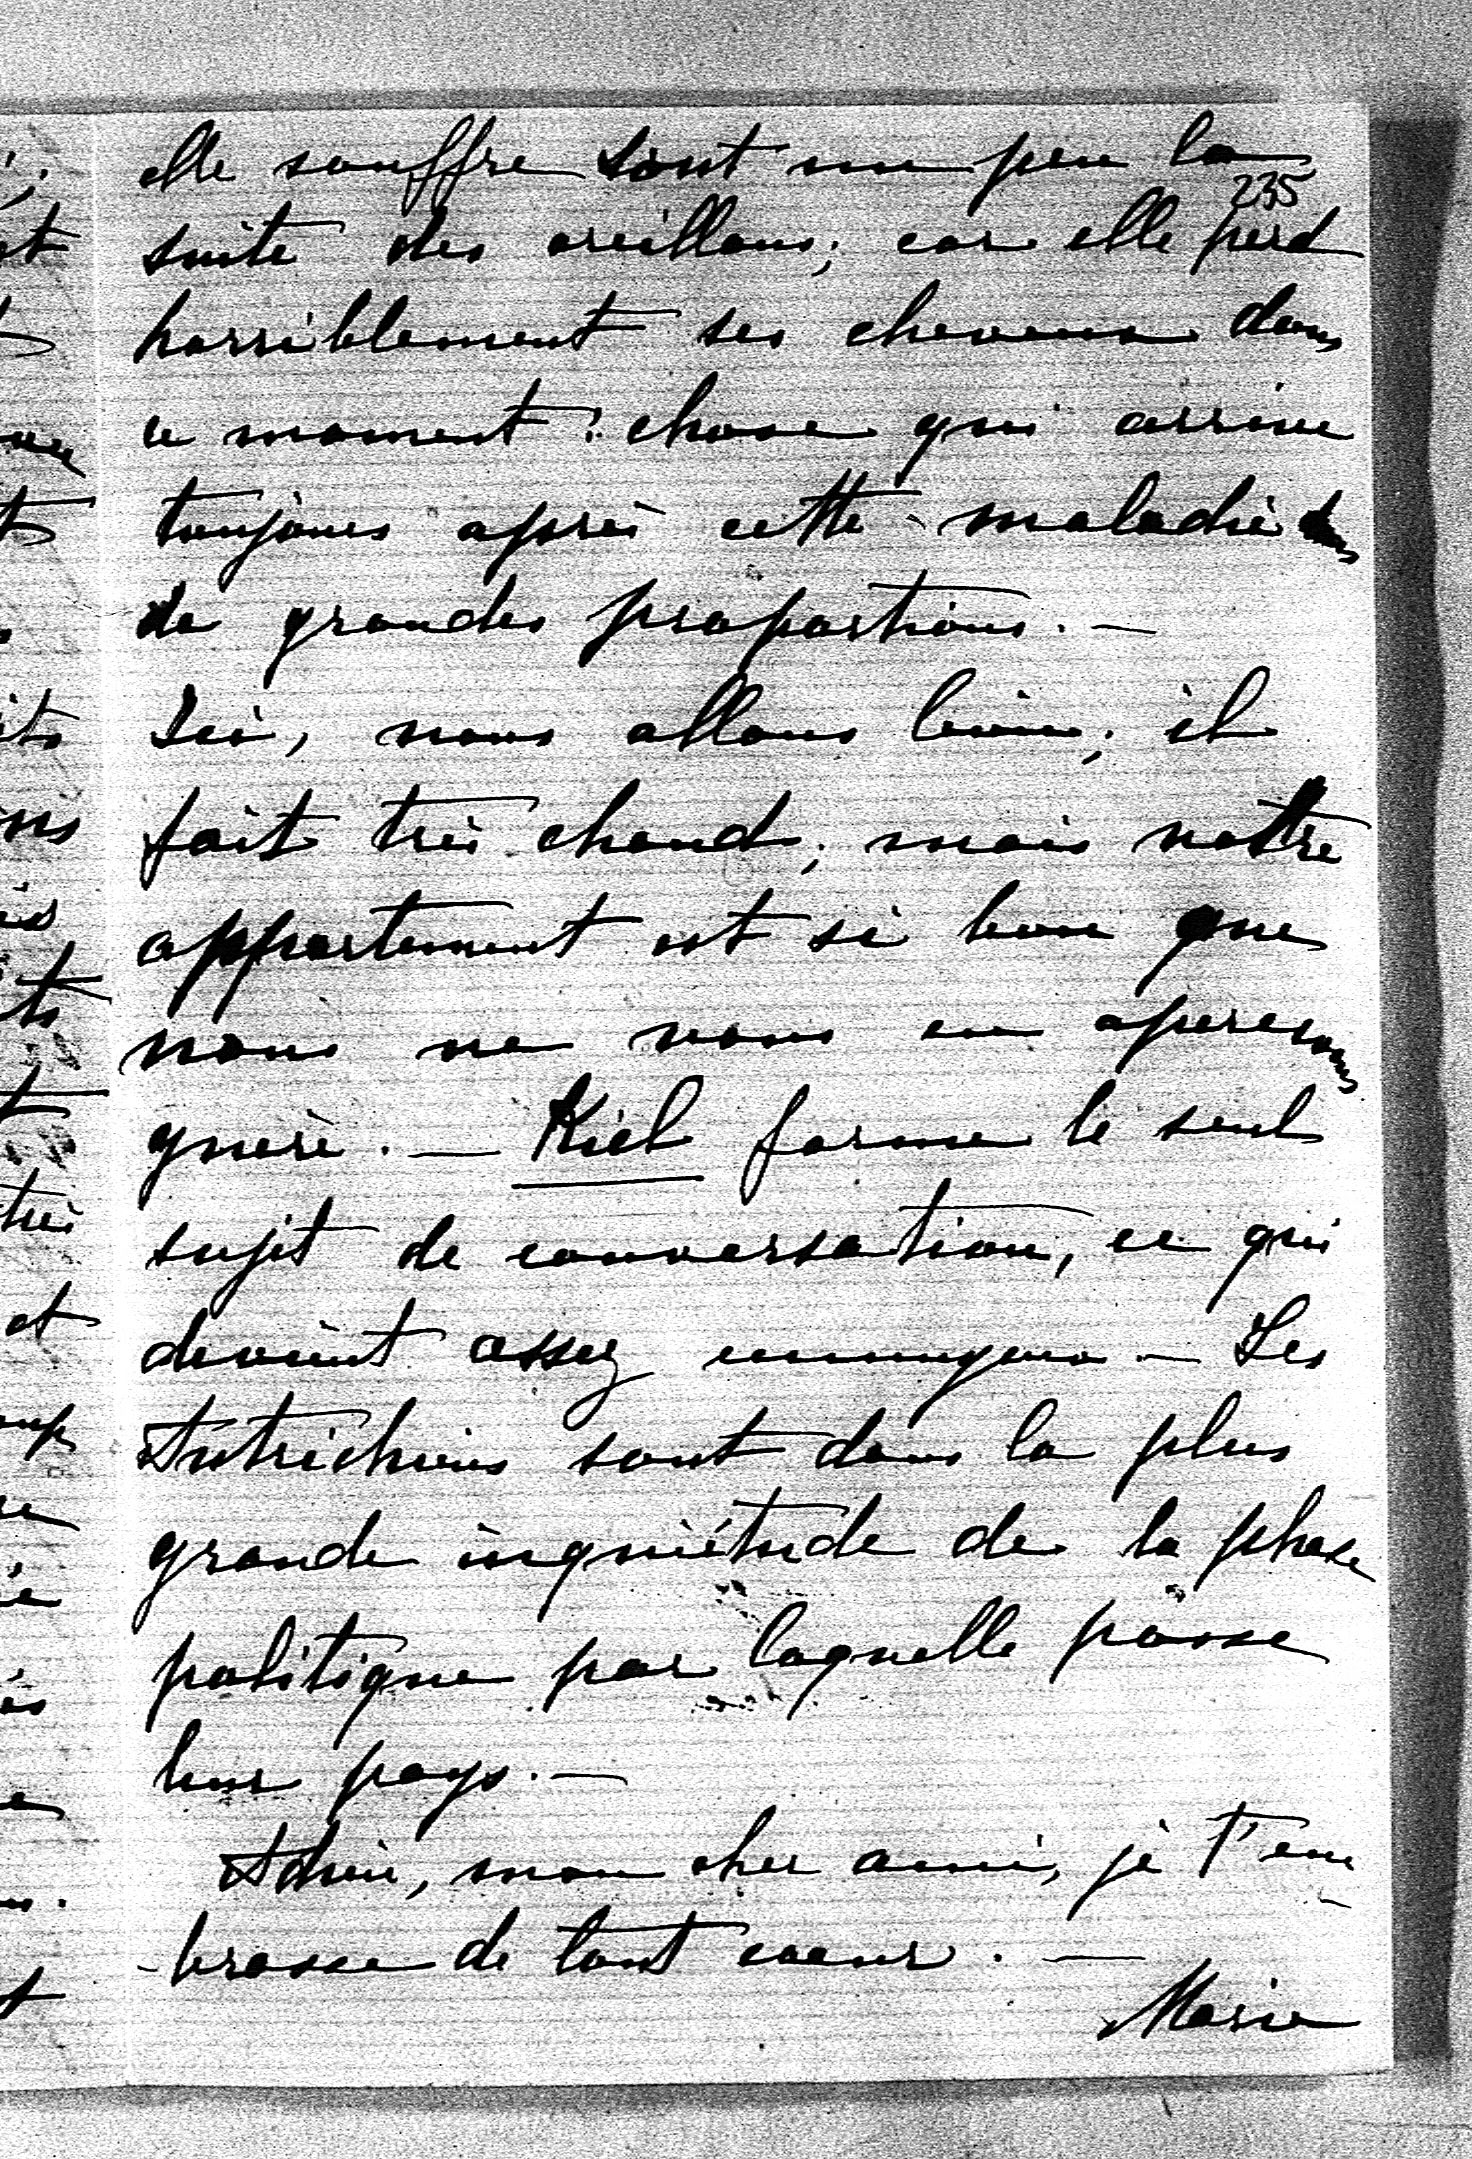 elle souffre sont un peu la
235
suite des oreillons; car elle perd
horriblement ses cheveux dans
ce moment; chose qui arrive
toujours après cette maladie dans
de grandes proportions. —
Ici, nous allons bien; il
fait très chaud; mais notre
appartement est si bon que
nous ne nous en apercevons
guère. — Kiel forme le seul
sujet de conversation, ce qui
devient assez ennuyeux — Les
Autrichiens sont dans la plus
grande inquiétude de la phase
politique par laquelle passe
leur pays. —
Adieu, mon cher ami, je t'em-
-brasse de tout coeur. —
Marie